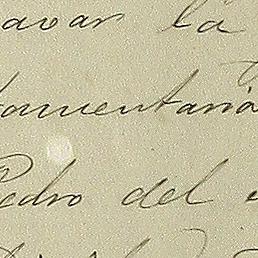 avar la
tamentaria
Pedro del